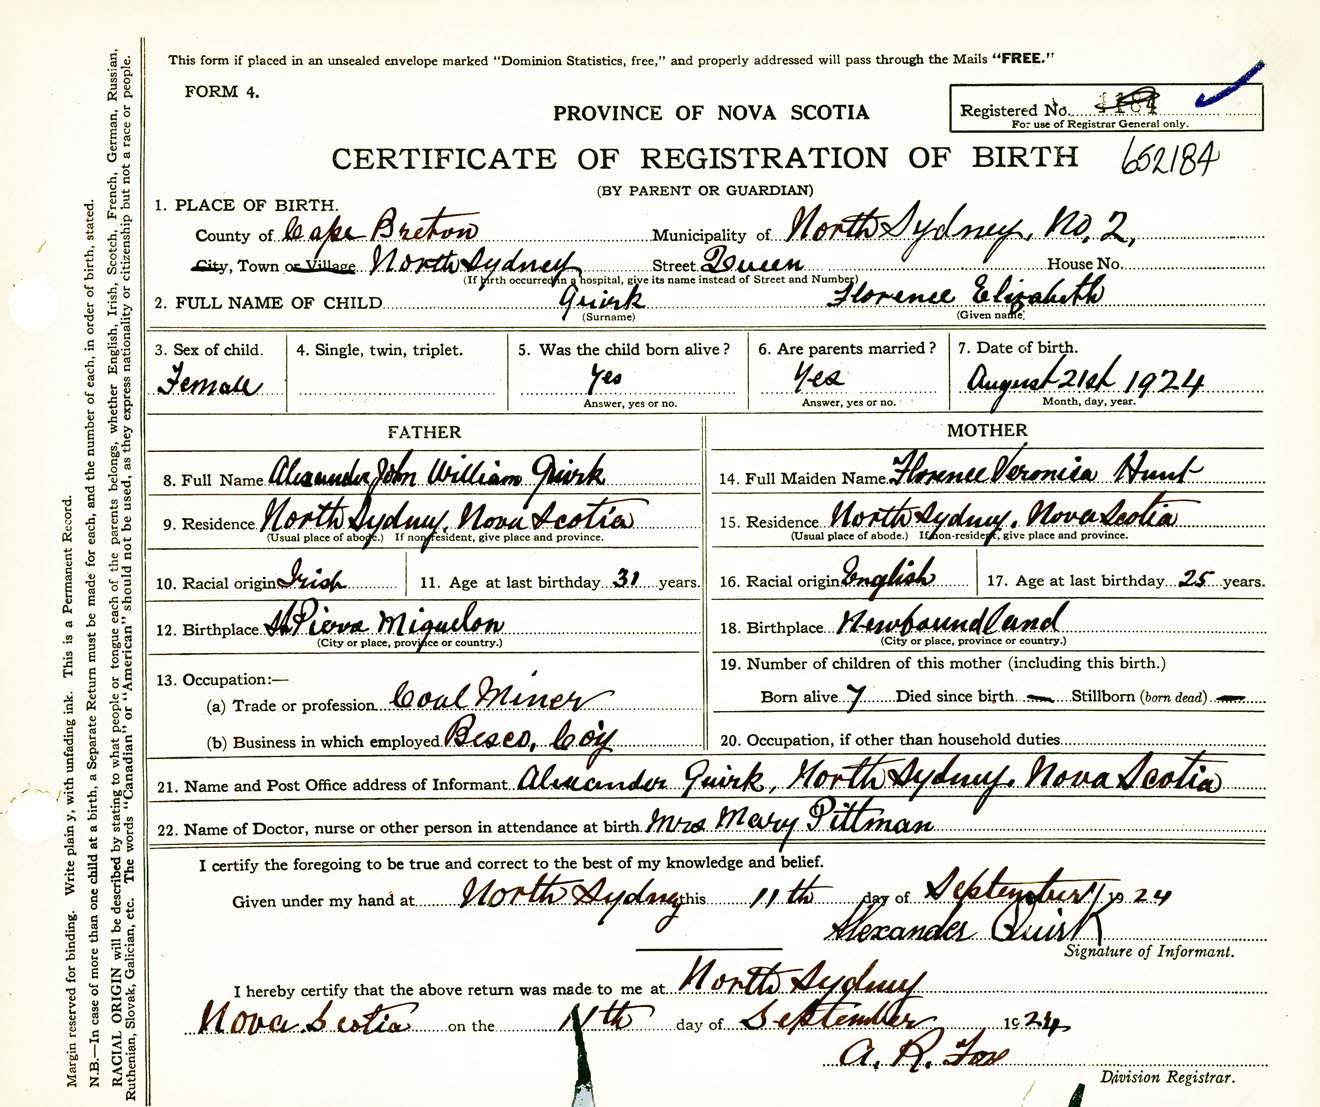 This form if placed in an unsealed envelope marked "Dominion Statistics, free," and properly addressed will pass through the Mails "FREE."
FORM 4.
PROVINCE OF NOVA SCOTIA
Registered No.
For use of Registrar General only.
CERTIFICATE OF REGISTRATION OF BIRTH 652184
(BY PARENT OR GUARDIAN)
1. PLACE OF BIRTH.
County of Cape Breton Municipality of North Sydney, No, 2,
City, Town or Village North Sydney Street Queen House No.
(If birth occurred in a hospital, give its name instead of Street and Number)
2. FULL NAME OF CHILD Quirk Florence Elizabeth
(Surname) (Given name)
3. Sex of child. 4. Single, twin, triplet. 5. Was the child born alive? 6. Are parents married? 7. Date of birth.
Female Yes Yes August 21st 1924
Answer, yes or no. Answer, yes or no. Month, day, year.
FATHER MOTHER
8. Full Name Alexander John William Quirk 14. Full Maiden Name Florence Veronica Hunt
9. Residence North Sydney, Nova Scotia 15. Residence North Sydney, Nova Scotia
(Usual place of abode.) If non-resident, give place and province. (Usual place of abode.) If non-resident, give place and province.
10. Racial origin Irish 11. Age at last birthday 31 years. 16. Racial origin English 17. Age at last birthday 25 years.
12. Birthplace St Pierre Miquelon 18. Birthplace Newfoundland
(City or place, province or country.) (City or place, province or country.)
19. Number of children of this mother (including this birth.)
13. Occupation:—
(a) Trade or profession Coal Miner Born alive 7 Died since birth — Stillborn (born dead) —
(b) Business in which employed Besco, Co'y 20. Occupation, if other than household duties
21. Name and Post Office address of Informant Alexander Quirk, North Sydney, Nova Scotia
22. Name of Doctor, nurse or other person in attendance at birth Mrs Mary Pittman
I certify the foregoing to be true and correct to the best of my knowledge and belief.
Given under my hand at North Sydney this 11th day of September 1924
Alexander Quirk
Signature of Informant.
I hereby certify that the above return was made to me at North Sydney
Nova Scotia on the 11th day of September 1924
A. R. Fox
Division Registrar.
Margin reserved for binding. Write plainly, with unfading ink. This is a Permanent Record.
N.B.—In case of more than one child at a birth, a Separate Return must be made for each, and the number of each, in order of birth, stated.
RACIAL ORIGIN will be described by stating to what people or tongue each of the parents belongs, whether English, Irish, Scotch, French, German, Russian,
Ruthenian, Slovak, Galician, etc. The words "Canadian" or "American" should not be used, as they express nationality or citizenship but not a race or people.